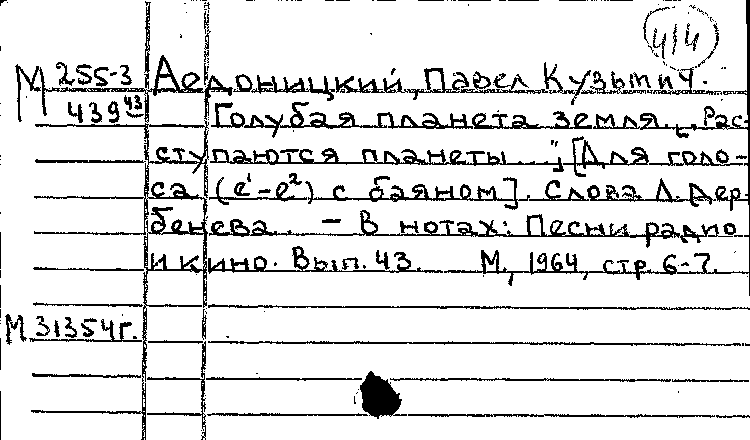 414
М 255-3
439 43
Аедоницкий, Павел Кузьмич.
Голубая планета земля. „Рас-
ступаются планеты..."; [Для голо-
са (e¹-e²) с баяном]. Слова Л. Дер-
бенева. — В нотах: Песни радио
и кино. Вып. 43. М., 1964, стр. 6-7.
М 31354г.